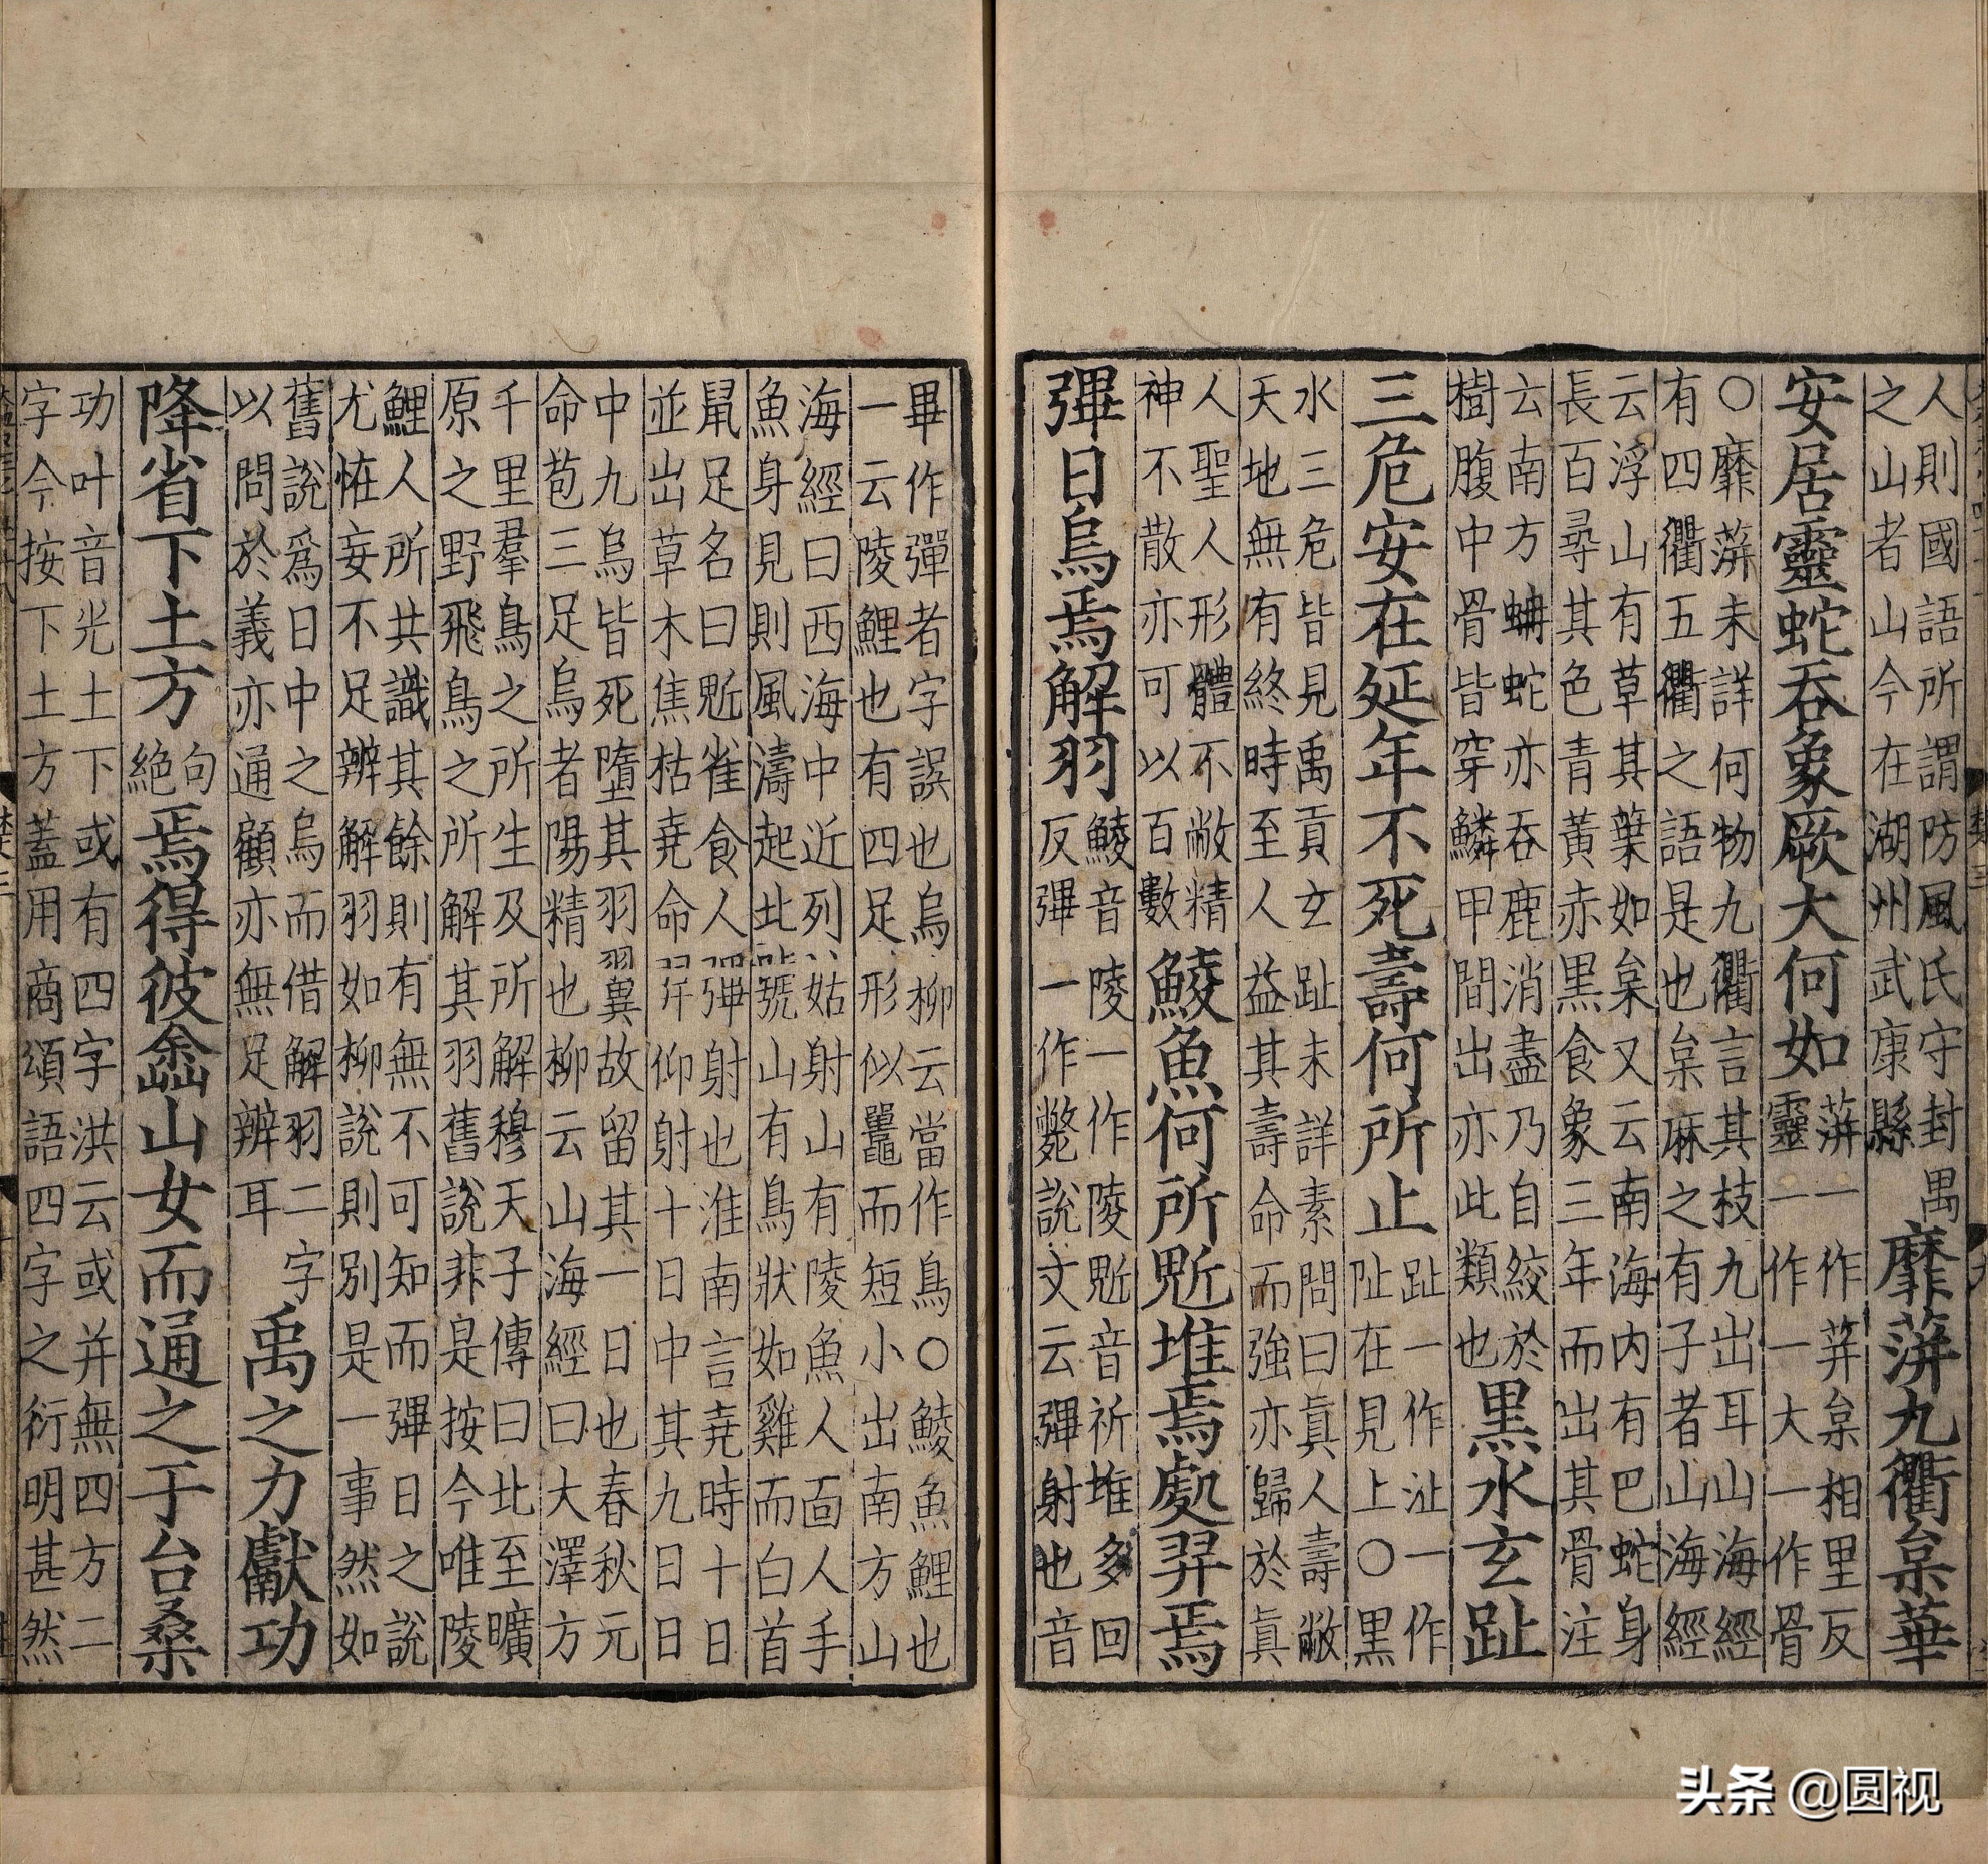 人則國語所謂防風氏守封禺
之山者山今在湖州武康縣
靡蓱九衢枲華
安居靈蛇吞象厥大何如
蓱一作荓枲相里反
靈一作一大一作骨
○靡蓱未詳何物九衢言其枝九出耳山海經
有四衢五衢之語是也枲麻之有子者山海經
云浮山有草其葉如枲又云南海内有巴蛇身
長百尋其色青黃赤黑食象三年而出其骨注
云南方蚺蛇亦吞鹿消盡乃自絞於
樹腹中骨皆穿鱗甲間出亦此類也
黑水玄趾
三危安在延年不死壽何所止
趾一作沚一作
阯在見上○黑
水三危皆見禹貢玄趾未詳素問曰眞人壽敝
天地無有終時至人益其壽命而強亦歸於眞
人聖人形體不敝精
神不散亦可以百數
鯪魚何所鬿堆焉處羿焉
彃日烏焉解羽
鯪音陵一作陵鬿音祈堆多回
反彃一作斃說文云彃射也音
畢作彈者字誤也烏柳云當作鳥○鯪魚鯉也
一云陵鯉也有四足形似鼉而短小出南方山
海經曰西海中近列姑射山有陵魚人面人手
魚身見則風濤起北號山有鳥狀如雞而白首
鼠足名曰鬿雀食人彃射也淮南言堯時十日
並出草木焦枯堯命羿仰射十日中其九日
中九烏皆死墮其羽翼故留其一日也春秋元
命苞三足烏者陽精也柳云山海經曰大澤方
千里羣鳥之所生及所解穆天子傳曰北至曠
原之野飛鳥之所解其羽舊說非是按今唯陵
鯉人所共識其餘則有無不可知而彃日之說
尤恠妄不足辨解羽如柳說則別是一事然如
舊說爲日中之烏而借解羽二字
以問於義亦通顧亦無足辨耳
禹之力獻功
降省下土方
句
絕
焉得彼嵞山女而通之于台桑
功叶音光土下或有四字洪云或并無四方二
字今按下土方蓋用商頌語四字之衍明甚然
头条 @圆视